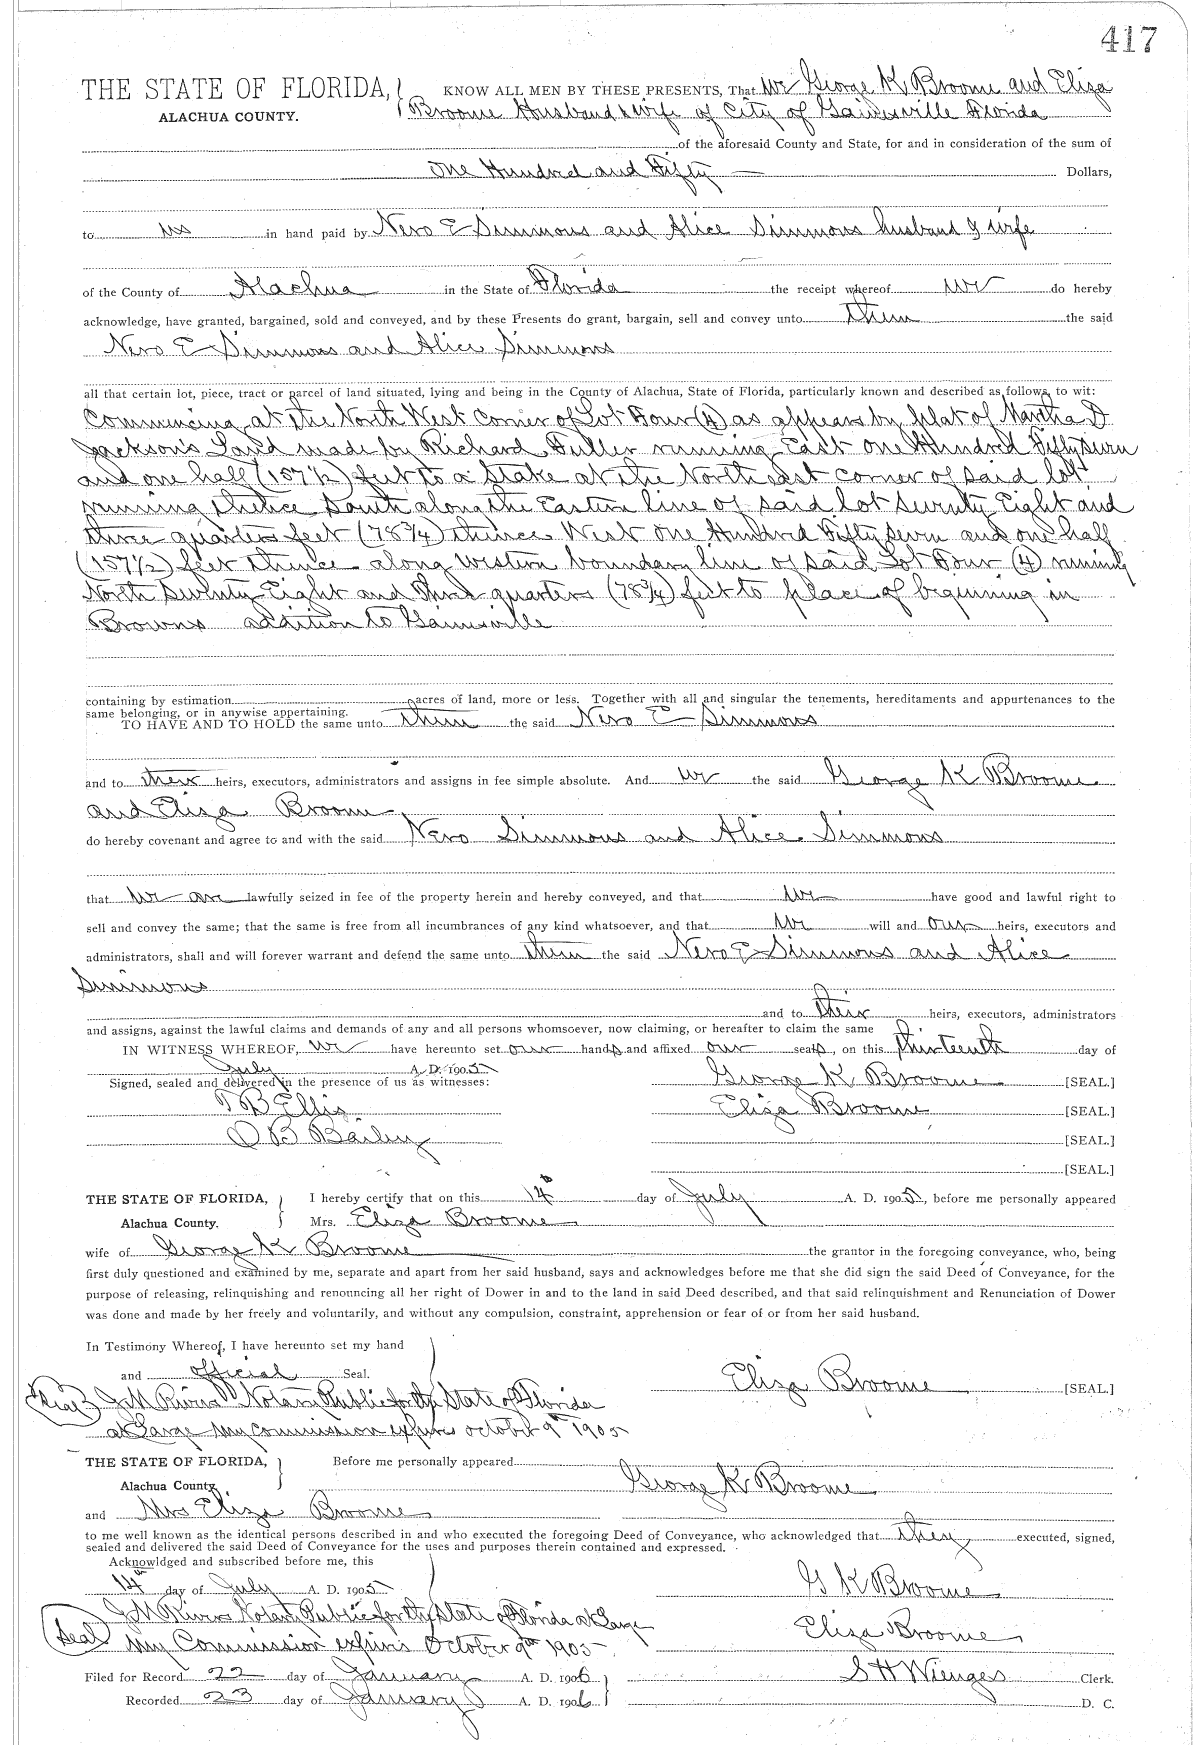 417
THE STATE OF FLORIDA, KNOW ALL MEN BY THESE PRESENTS, That We George K Broome and Eliza
ALACHUA COUNTY. Broome Husband & wife of City of Gainesville Florida
of the aforesaid County and State, for and in consideration of the sum of
One Hundred and Fifty Dollars,
to us in hand paid by Nero E Simmons and Alice Simmons husband & wife
of the County of Alachua in the State of Florida the receipt whereof we do hereby
acknowledge, have granted, bargained, sold and conveyed, and by these Presents do grant, bargain, sell and convey unto them the said
Nero E Simmons and Alice Simmons
all that certain lot, piece, tract or parcel of land situated, lying and being in the County of Alachua, State of Florida, particularly known and described as follows, to wit:
Commencing at the North West Corner of Lot Four (4) as appears by plat of Martha D
Jackson's Land made by Richard Fuller running East one Hundred Fifty Seven
and one half (157½) feet to a Stake at the Northeast corner of said lot
running thence South along the Eastern line of said lot Seventy Eight and
three quarters feet (78¾) thence West one Hundred Fifty Seven and one half
(157½) feet thence along western boundary line of said Lot Four (4) running
North Seventy Eight and three quarters (78¾) feet to place of beginning in
Browns addition to Gainesville
containing by estimation acres of land, more or less. Together with all and singular the tenements, hereditaments and appurtenances to the
same belonging, or in anywise appertaining.
TO HAVE AND TO HOLD the same unto them the said Nero E Simmons
and to their heirs, executors, administrators and assigns in fee simple absolute. And we the said George K Broome
and Eliza Broome
do hereby covenant and agree to and with the said Nero Simmons and Alice Simmons
that we are lawfully seized in fee of the property herein and hereby conveyed, and that we have good and lawful right to
sell and convey the same; that the same is free from all incumbrances of any kind whatsoever, and that we will and our heirs, executors and
administrators, shall and will forever warrant and defend the same unto them the said Nero E Simmons and Alice
Simmons
and to their heirs, executors, administrators
and assigns, against the lawful claims and demands of any and all persons whomsoever, now claiming, or hereafter to claim the same
IN WITNESS WHEREOF, we have hereunto set our hands and affixed our seals, on this thirteenth day of
July A. D. 1905
Signed, sealed and delivered in the presence of us as witnesses: George K Broome [SEAL.]
T B Ellis Eliza Broome [SEAL.]
O B Bailey [SEAL.]
[SEAL.]
THE STATE OF FLORIDA, I hereby certify that on this 14th day of July A. D. 1905, before me personally appeared
Alachua County. Mrs. Eliza Broome
wife of George K Broome the grantor in the foregoing conveyance, who, being
first duly questioned and examined by me, separate and apart from her said husband, says and acknowledges before me that she did sign the said Deed of Conveyance, for the
purpose of releasing, relinquishing and renouncing all her right of Dower in and to the land in said Deed described, and that said relinquishment and Renunciation of Dower
was done and made by her freely and voluntarily, and without any compulsion, constraint, apprehension or fear of or from her said husband.
In Testimony Whereof, I have hereunto set my hand
and official Seal. Eliza Broome [SEAL.]
Seal J M Rivers Notary Public for the State of Florida
at Large My Commission expires October 9th 1905
THE STATE OF FLORIDA, Before me personally appeared
Alachua County. George K Broome
and Mrs Eliza Broome
to me well known as the identical persons described in and who executed the foregoing Deed of Conveyance, who acknowledged that they executed, signed,
sealed and delivered the said Deed of Conveyance for the uses and purposes therein contained and expressed.
Acknowldged and subscribed before me, this
14th day of July A. D. 1905 G K Broome
J M Rivers Notary Public for the State of Florida at Large
Seal My Commission expires October 9th 1905 Eliza Broome
Filed for Record 22 day of January A. D. 1906 S H Wienges Clerk.
Recorded 23 day of January A. D. 1906 D. C.